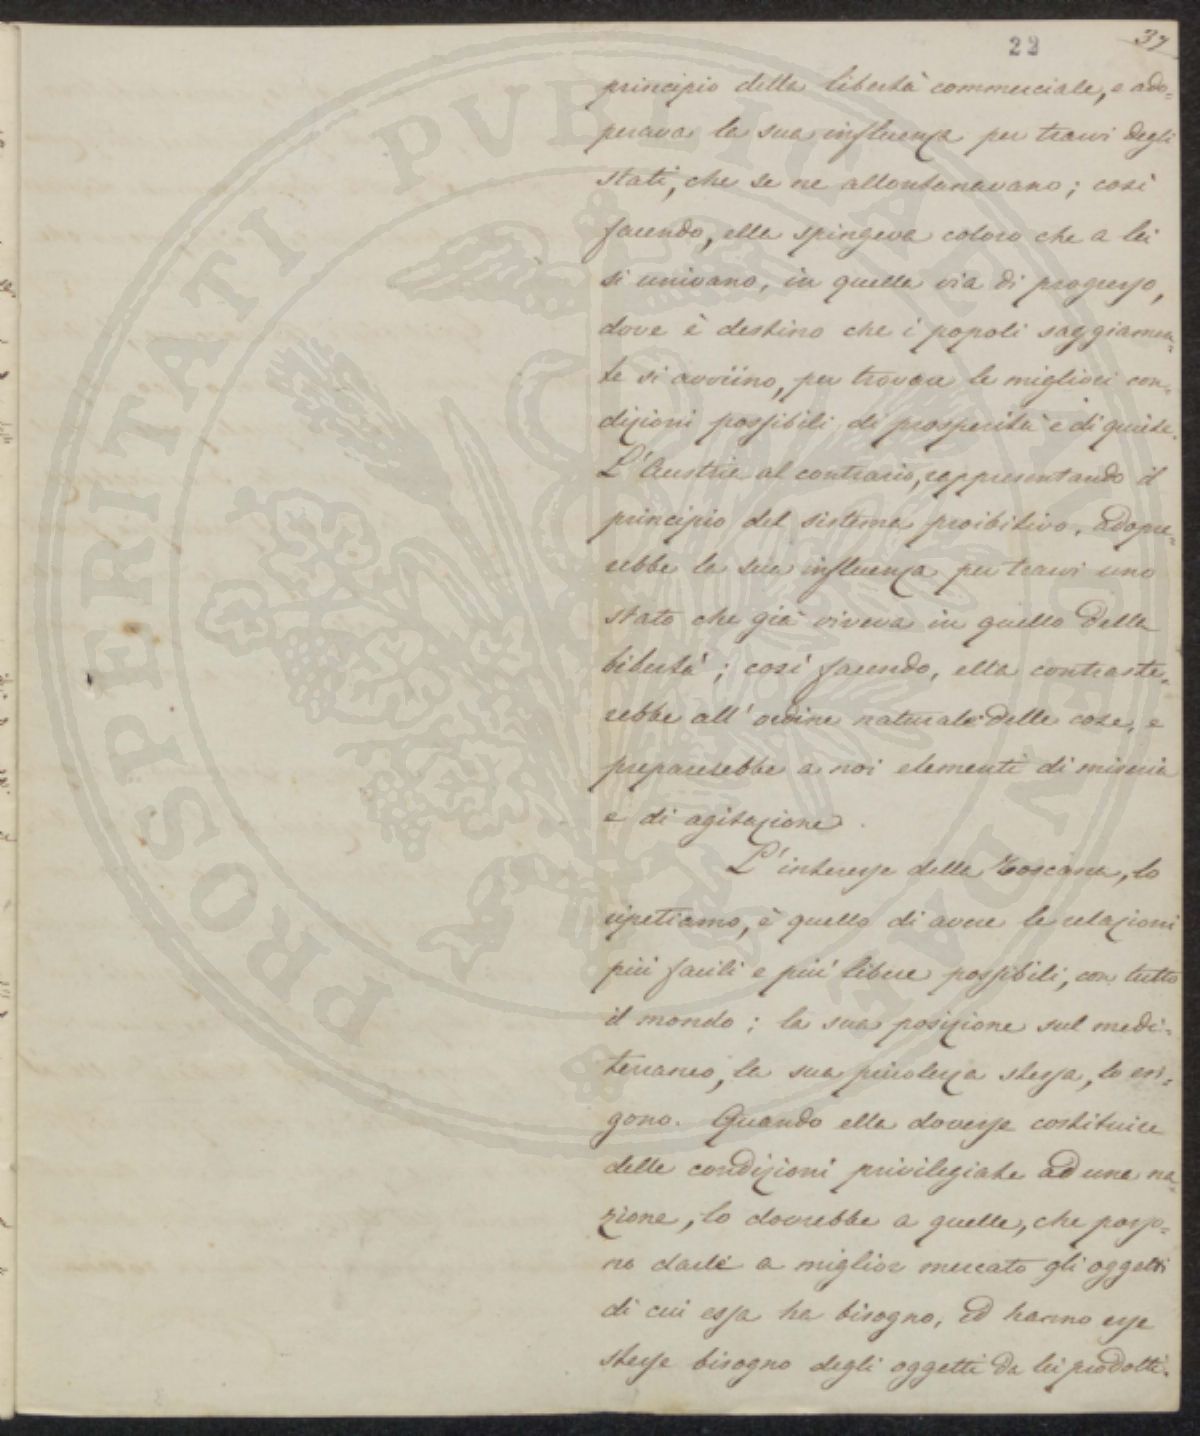 22
37
principio della libertà commerciale, e ado=
perava la sua influenza per trarvi degli
stati, che se ne allontanavano; così
facendo, ella spingeva coloro che a lei
si univano, in quella via di progresso,
dove è destino che i popoli saggiamen=
te si avviino, per trovare le migliori con=
dizioni possibili di prosperità e di quiete.
L'Austria al contrario, rappresentando il
principio del sistema proibitivo, adopre=
rebbe la sua influenza per trarvi uno
stato che già viveva in quello della
libertà; così facendo, ella contraste=
rebbe all'ordine naturale delle cose, e
preparerebbe a noi elementi di miseria
e di agitazione.
L'interesse della Toscana, lo
ripetiamo, è quello di avere le relazioni
più facili e più libere possibili, con tutto
il mondo; la sua posizione sul medi=
terraneo, la sua piccolezza stessa, lo esi=
gono. Quando ella dovesse costituire
delle condizioni privilegiate ad una na=
zione, lo dovrebbe a quelle, che posso=
no darle a miglior mercato gli oggetti
di cui essa ha bisogno, ed hanno esse
stesse bisogno degli oggetti da lei prodotti.
PROSPERITATI PUBLICAE AUGENDAE